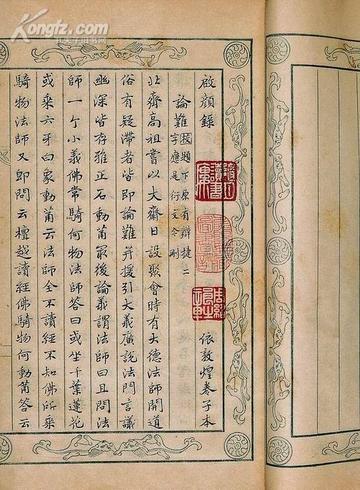 Kongfz.com
啟顏錄 依敦煌卷子本
論難 原題下原有辯捷二字應是衍文今刪
北齊高祖嘗以大齋日設聚會時有大德法師開道
俗有疑滯者皆即論難並援引大義廣說法門言議
幽深皆存雅正石動莆最後論義謂法師曰且問法
師一个小義佛常騎何物法師答曰或坐千葉蓮花
或乘六牙白象動莆云法師全不讀經不知佛所乘
騎物法師又即問云檀越讀經佛騎物何動莆答云